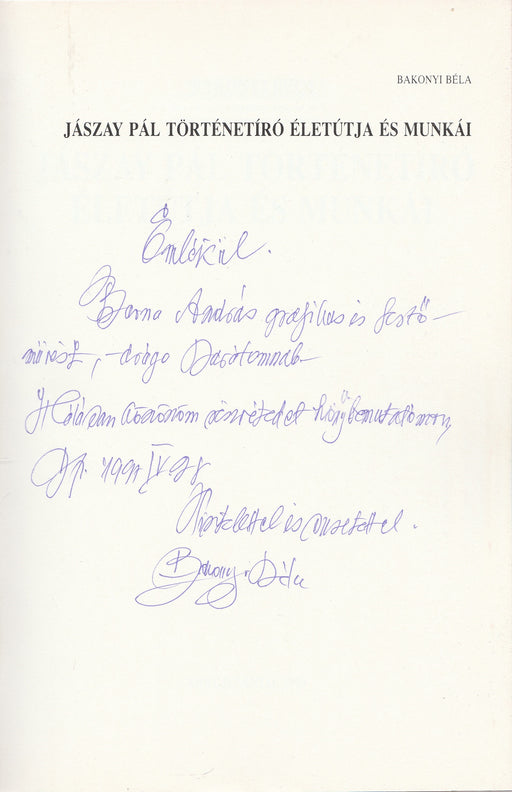 BAKONYI BÉLA
JÁSZAY PÁL TÖRTÉNETÍRÓ ÉLETÚTJA ÉS MUNKÁI
Emlékül.
Barna András grafikus és festő-
művész, drága Barátomnak
Hálásan köszönöm részvételedet könyvbemutatómon,
Bp. 1991 IV
Tisztelettel és szeretettel.
Bakonyi Béla